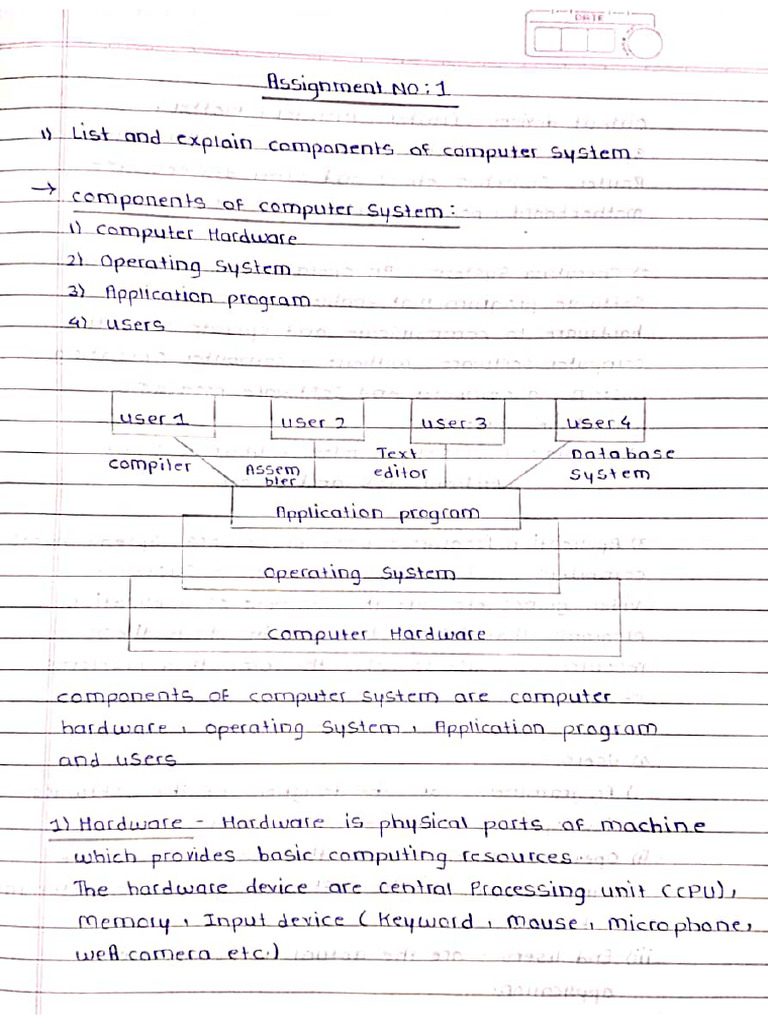 DATE
Assignment No : 1
1) List and explain components of computer system.
→ components of computer system :
1) computer Hardware
2) Operating system
3) Application program
4) users
user 1 user 2 user 3 user 4
compiler Assem bler Text editor Database system
Application program
Operating system
computer Hardware
components of computer system are computer
hardware, operating system, Application program
and users
1) Hardware - Hardware is physical parts of machine
which provides basic computing resources.
The hardware device are central Processing unit (CPU),
Memory, Input device (Keyword, mouse, microphone,
web camera etc.)